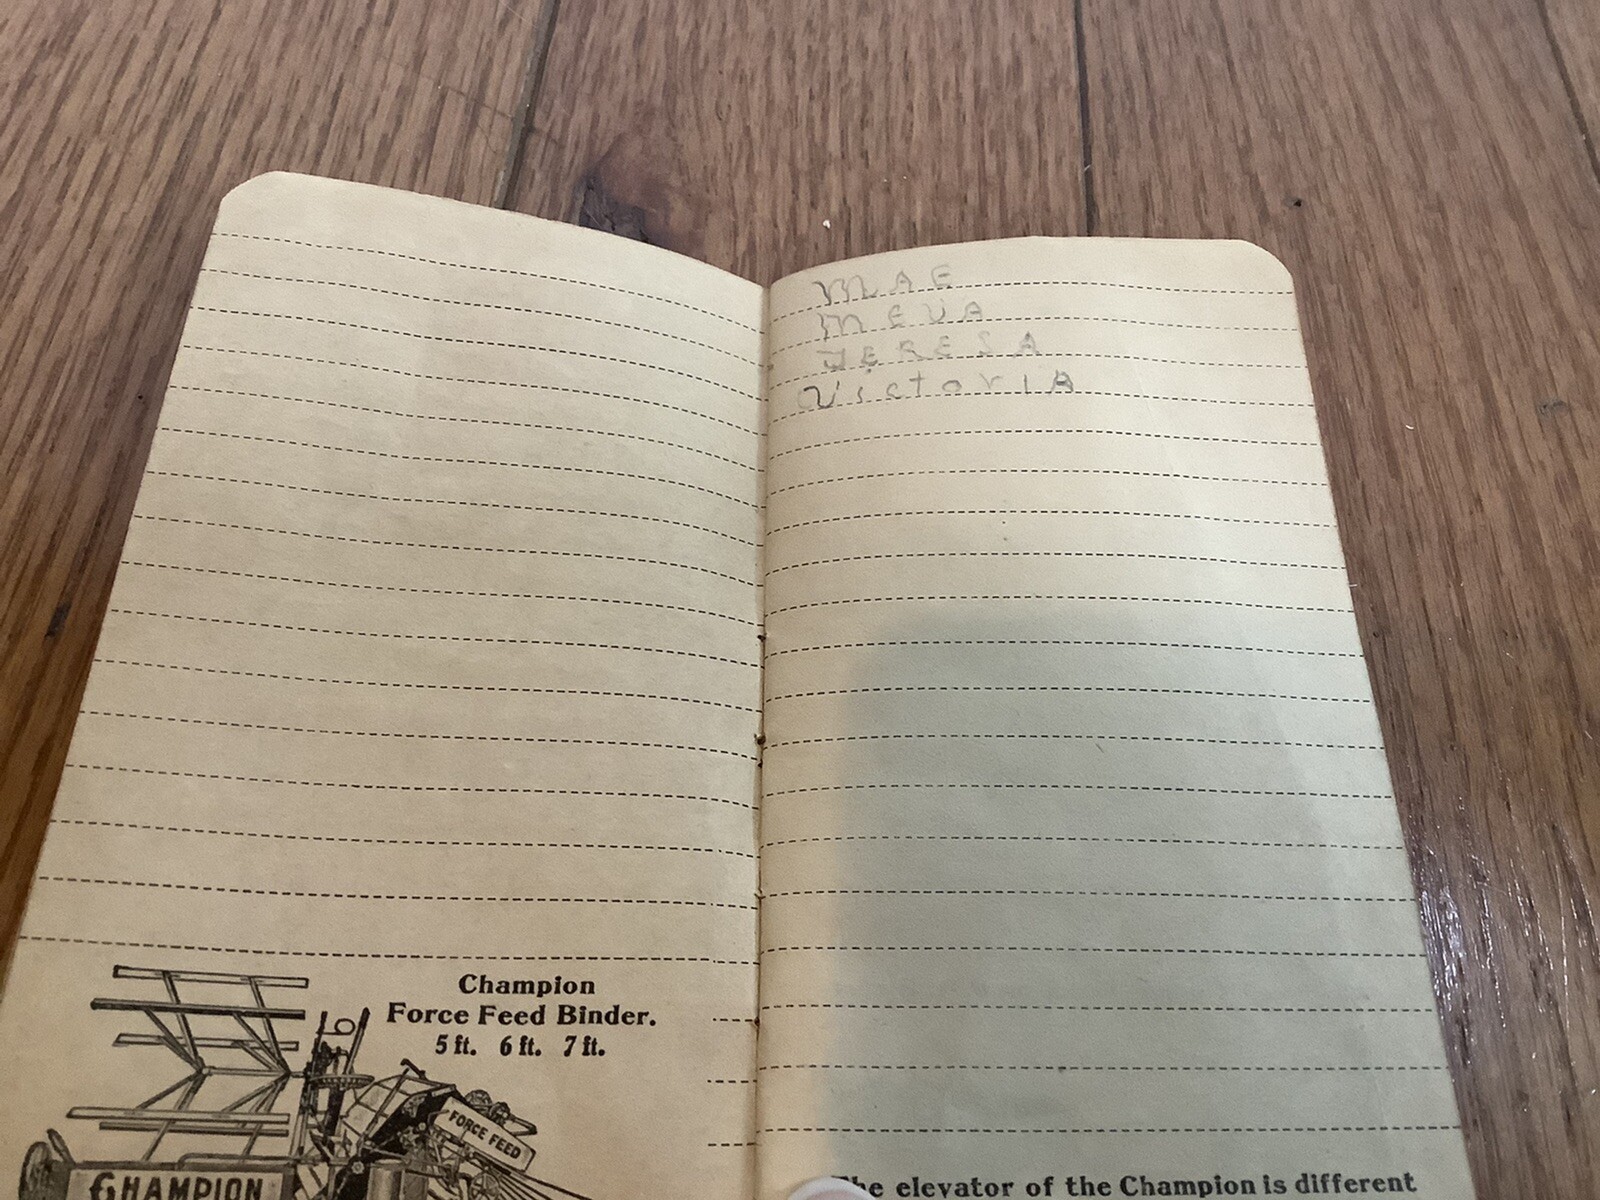 Champion
Force Feed Binder.
5 ft. 6 ft. 7 ft.
FORCE FEED
CHAMPION
MAE
MEVA
TERESA
VictorIA
The elevator of the Champion is different